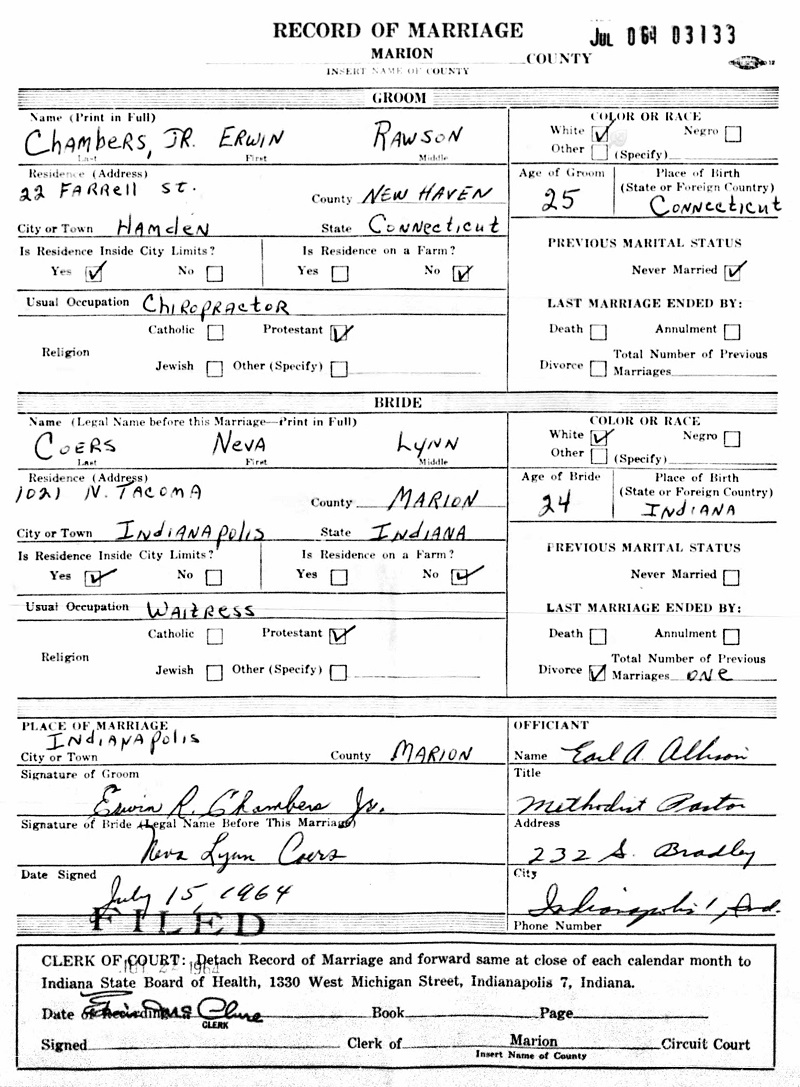 RECORD OF MARRIAGE
JUL 064 03133
MARION COUNTY
INSERT NAME OF COUNTY
12
GROOM
Name (Print in Full)
Chambers, JR. ERWIN RAWSON
Last First Middle
COLOR OR RACE
White ☑ Negro ☐
Other ☐ (Specify)
Residence (Address)
22 FARRELL ST.
County NEW HAVEN
City or Town HAMDEN State CONNECTICUT
Age of Groom
25
Place of Birth
(State or Foreign Country)
CONNECTICUT
Is Residence Inside City Limits?
Yes ☑ No ☐
Is Residence on a Farm?
Yes ☐ No ☑
PREVIOUS MARITAL STATUS
Never Married ☑
Usual Occupation CHIROPRACTOR
Religion
Catholic ☐ Protestant ☑
Jewish ☐ Other (Specify) ☐
LAST MARRIAGE ENDED BY:
Death ☐ Annulment ☐
Divorce ☐ Total Number of Previous
Marriages
BRIDE
Name (Legal Name before this Marriage—Print in Full)
COERS NEVA LYNN
Last First Middle
COLOR OR RACE
White ☑ Negro ☐
Other ☐ (Specify)
Residence (Address)
1021 N. TACOMA
County MARION
City or Town INDIANAPOLIS State INDIANA
Age of Bride
24
Place of Birth
(State or Foreign Country)
INDIANA
Is Residence Inside City Limits?
Yes ☑ No ☐
Is Residence on a Farm?
Yes ☐ No ☑
PREVIOUS MARITAL STATUS
Never Married ☐
Usual Occupation WAITRESS
Religion
Catholic ☐ Protestant ☑
Jewish ☐ Other (Specify) ☐
LAST MARRIAGE ENDED BY:
Death ☐ Annulment ☐
Divorce ☑ Total Number of Previous
Marriages ONE
PLACE OF MARRIAGE
INDIANAPOLIS
City or Town County MARION
Signature of Groom
Erwin R. Chambers Jr.
Signature of Bride (Legal Name Before This Marriage)
Neva Lynn Coers
Date Signed
July 15, 1964
FILED
OFFICIANT
Name Earl A. Allison
Title
Methodist Pastor
Address
232 S. Bradley
City
Indianapolis, Ind.
Phone Number
CLERK OF COURT: Detach Record of Marriage and forward same at close of each calendar month to
1964
Indiana State Board of Health, 1330 West Michigan Street, Indianapolis 7, Indiana.
Date of Book Page
CLERK
Signed Clerk of Marion Circuit Court
Insert Name of County